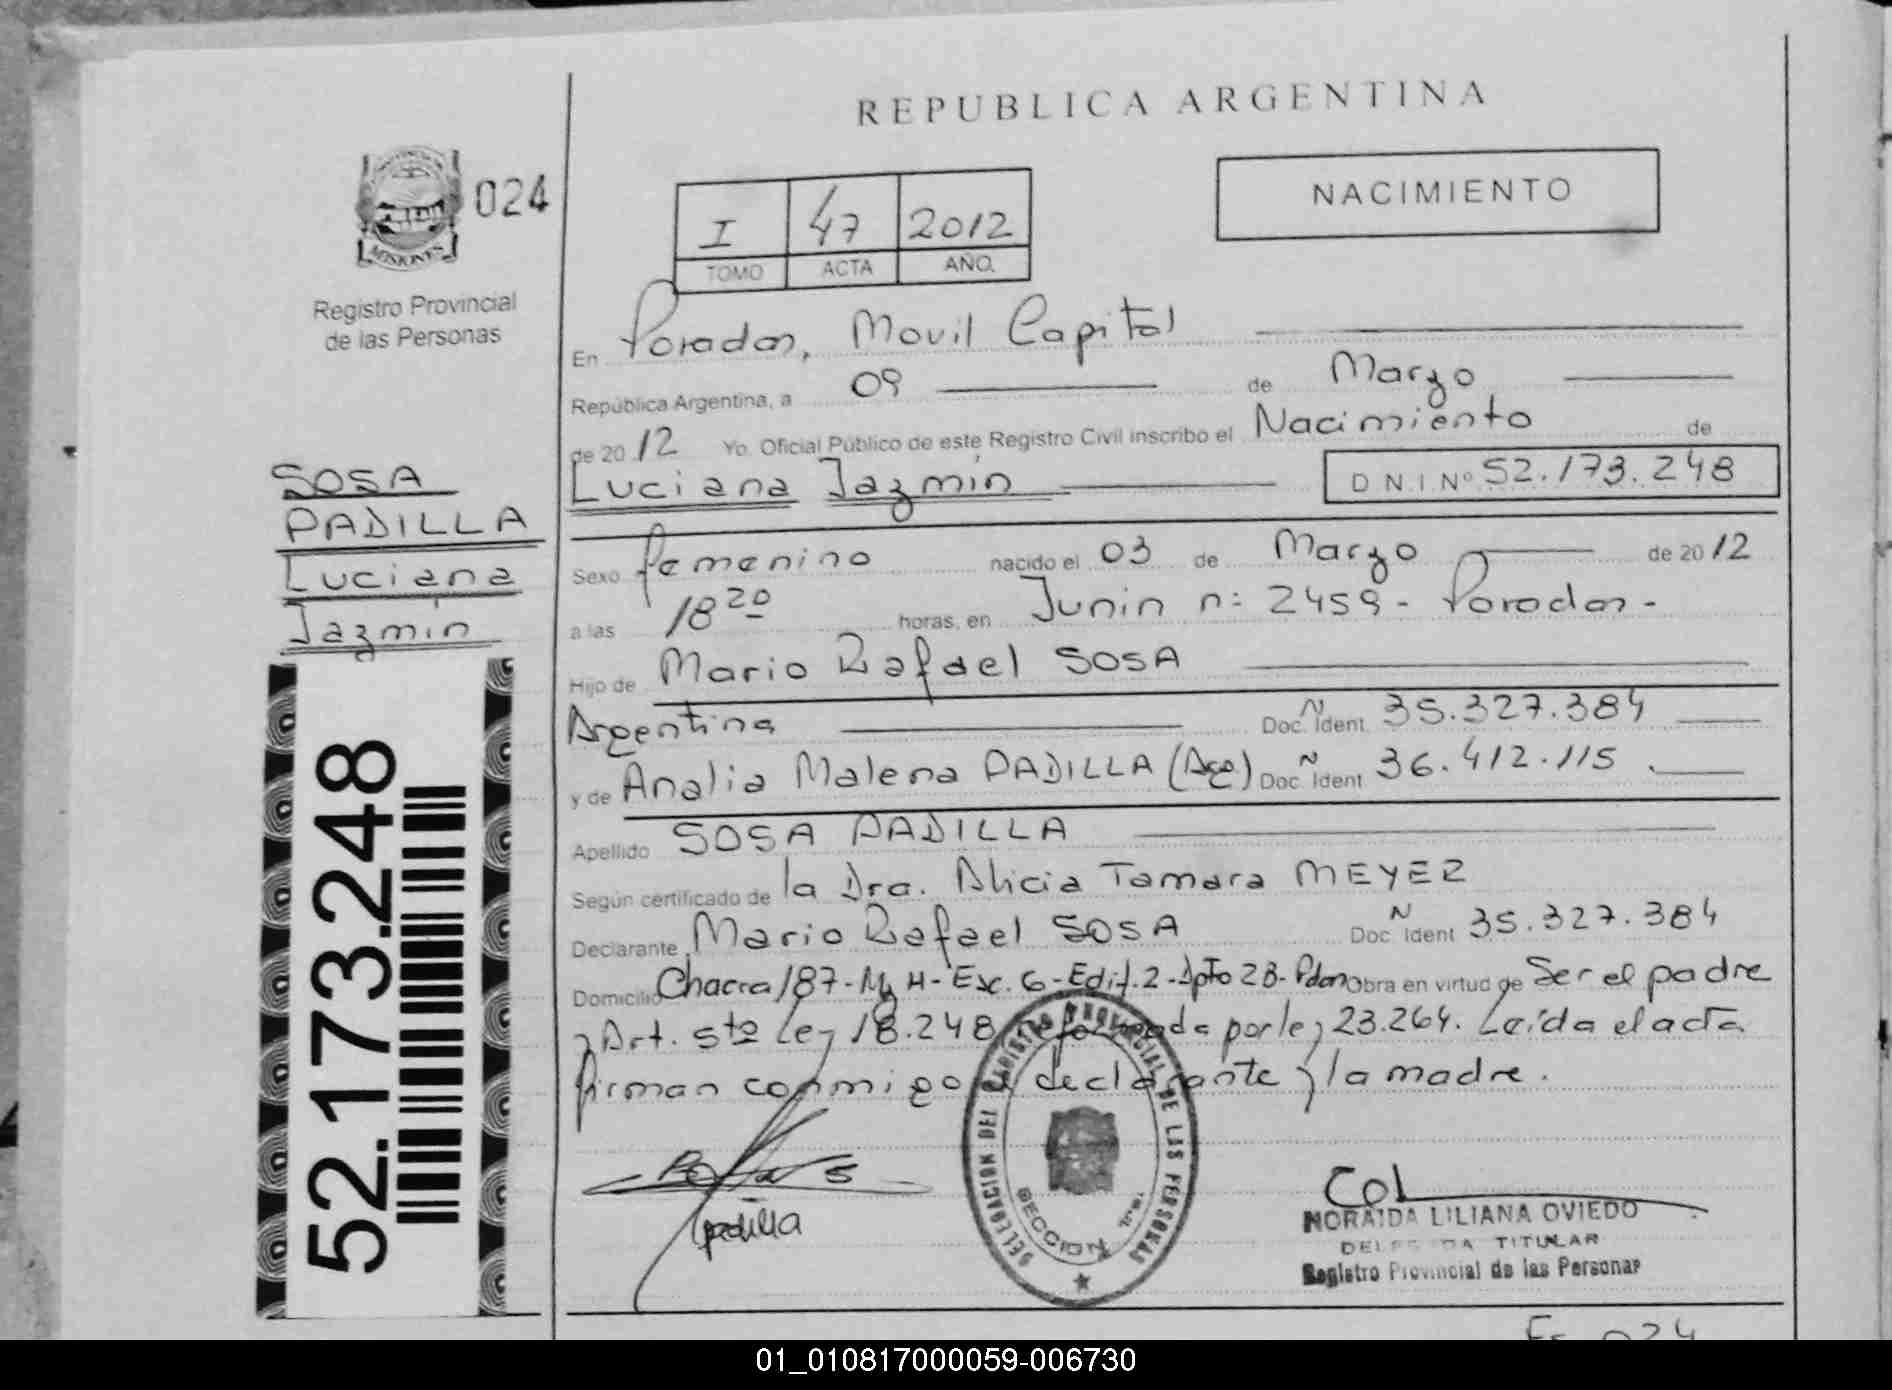 REPUBLICA ARGENTINA
024
NACIMIENTO
I 47 2012
TOMO ACTA AÑO
MISIONES
Registro Provincial
de las Personas
En Posadas, Movil Capital
República Argentina, a 09 de Marzo
de 2012 Yo. Oficial Público de este Registro Civil inscribo el Nacimiento de
Luciana Jazmín D.N.I. Nº 52.173.248
SOSA
PADILLA
Luciana
Jazmín
Sexo femenino nacido el 03 de Marzo de 2012
a las 18 20 horas, en Junin nº 2459 - Posadas -
Hijo de Mario Rafael SOSA
Argentina Doc. Ident. N 35.327.384
y de Analia Malena PADILLA (Arg.) Doc. Ident. N 36.412.115
Apellido SOSA PADILLA
Según certificado de la Dra. Alicia Tamara MEYER
Declarante Mario Rafael SOSA Doc. Ident N 35.327.384
Domicilio Chacra 187 - Mz H - Esc. 6 - Edif. 2 - Dpto 2B - Pdas Obra en virtud de Ser el padre
y Art. 5to Ley 18.248 reformada por ley 23.264. Leída el acta
firman conmigo el declarante y la madre.
52.173.248
padilla
DELEGACION DEL REGISTRO PROVINCIAL DE LAS PERSONAS
SECCION
NORAIDA LILIANA OVIEDO
DELEGADA TITULAR
Registro Provincial de las Personas
01_010817000059-006730